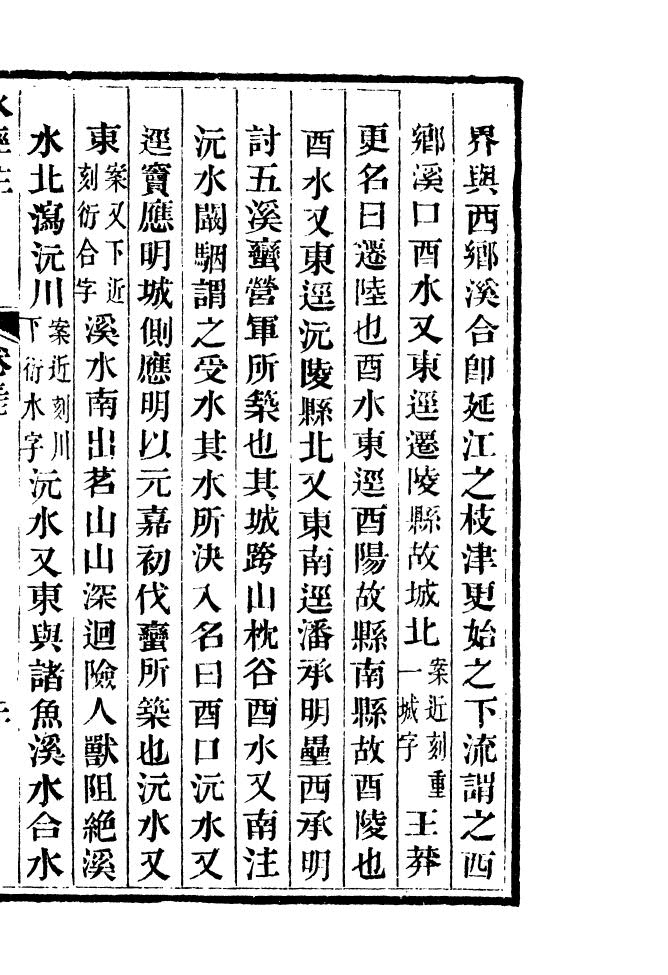 界與西鄉溪合卽延江之枝津更始之下流謂之西
鄉溪口酉水又東逕遷陵縣故城北案近刻重一城字王莽
更名曰遷陸也酉水東逕酉陽故縣南縣故酉陵也
酉水又東逕沅陵縣北又東南逕潘承明壘西承明
討五溪蠻營軍所築也其城跨山枕谷酉水又南注
沅水闞駰謂之受水其水所決入名曰酉口沅水又
逕竇應明城側應明以元嘉初伐蠻所築也沅水又
東案又下近刻衍合字溪水南出茗山山深迴險人獸阻絶溪
水北瀉沅川案近刻川下衍水字沅水又東與諸魚溪水合水
水經注